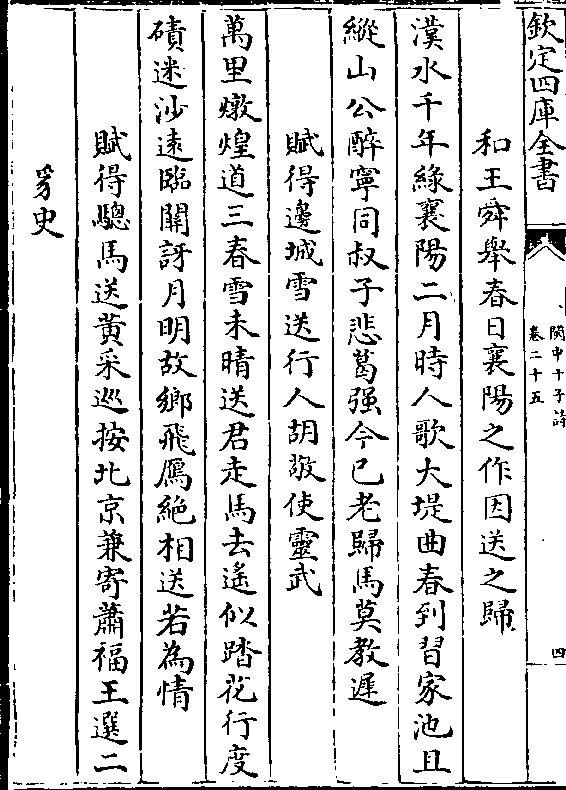 欽定四庫全書
閩中十子詩
卷二十五
四
和王舜舉春日襄陽之作因送之歸
漢水千年緣襄陽二月時人歌大堤曲春到習家池且
縱山公醉寧同叔子悲葛强今已老歸馬莫教遲
賦得邊城雪送行人胡敬使靈武
萬里燉煌道三春雪未晴送君走馬去遙似踏花行度
磧迷沙遠臨關訝月明故鄉飛鴈絶相送若為情
賦得驄馬送黄采巡按北京兼寄蕭福王選二
豸史